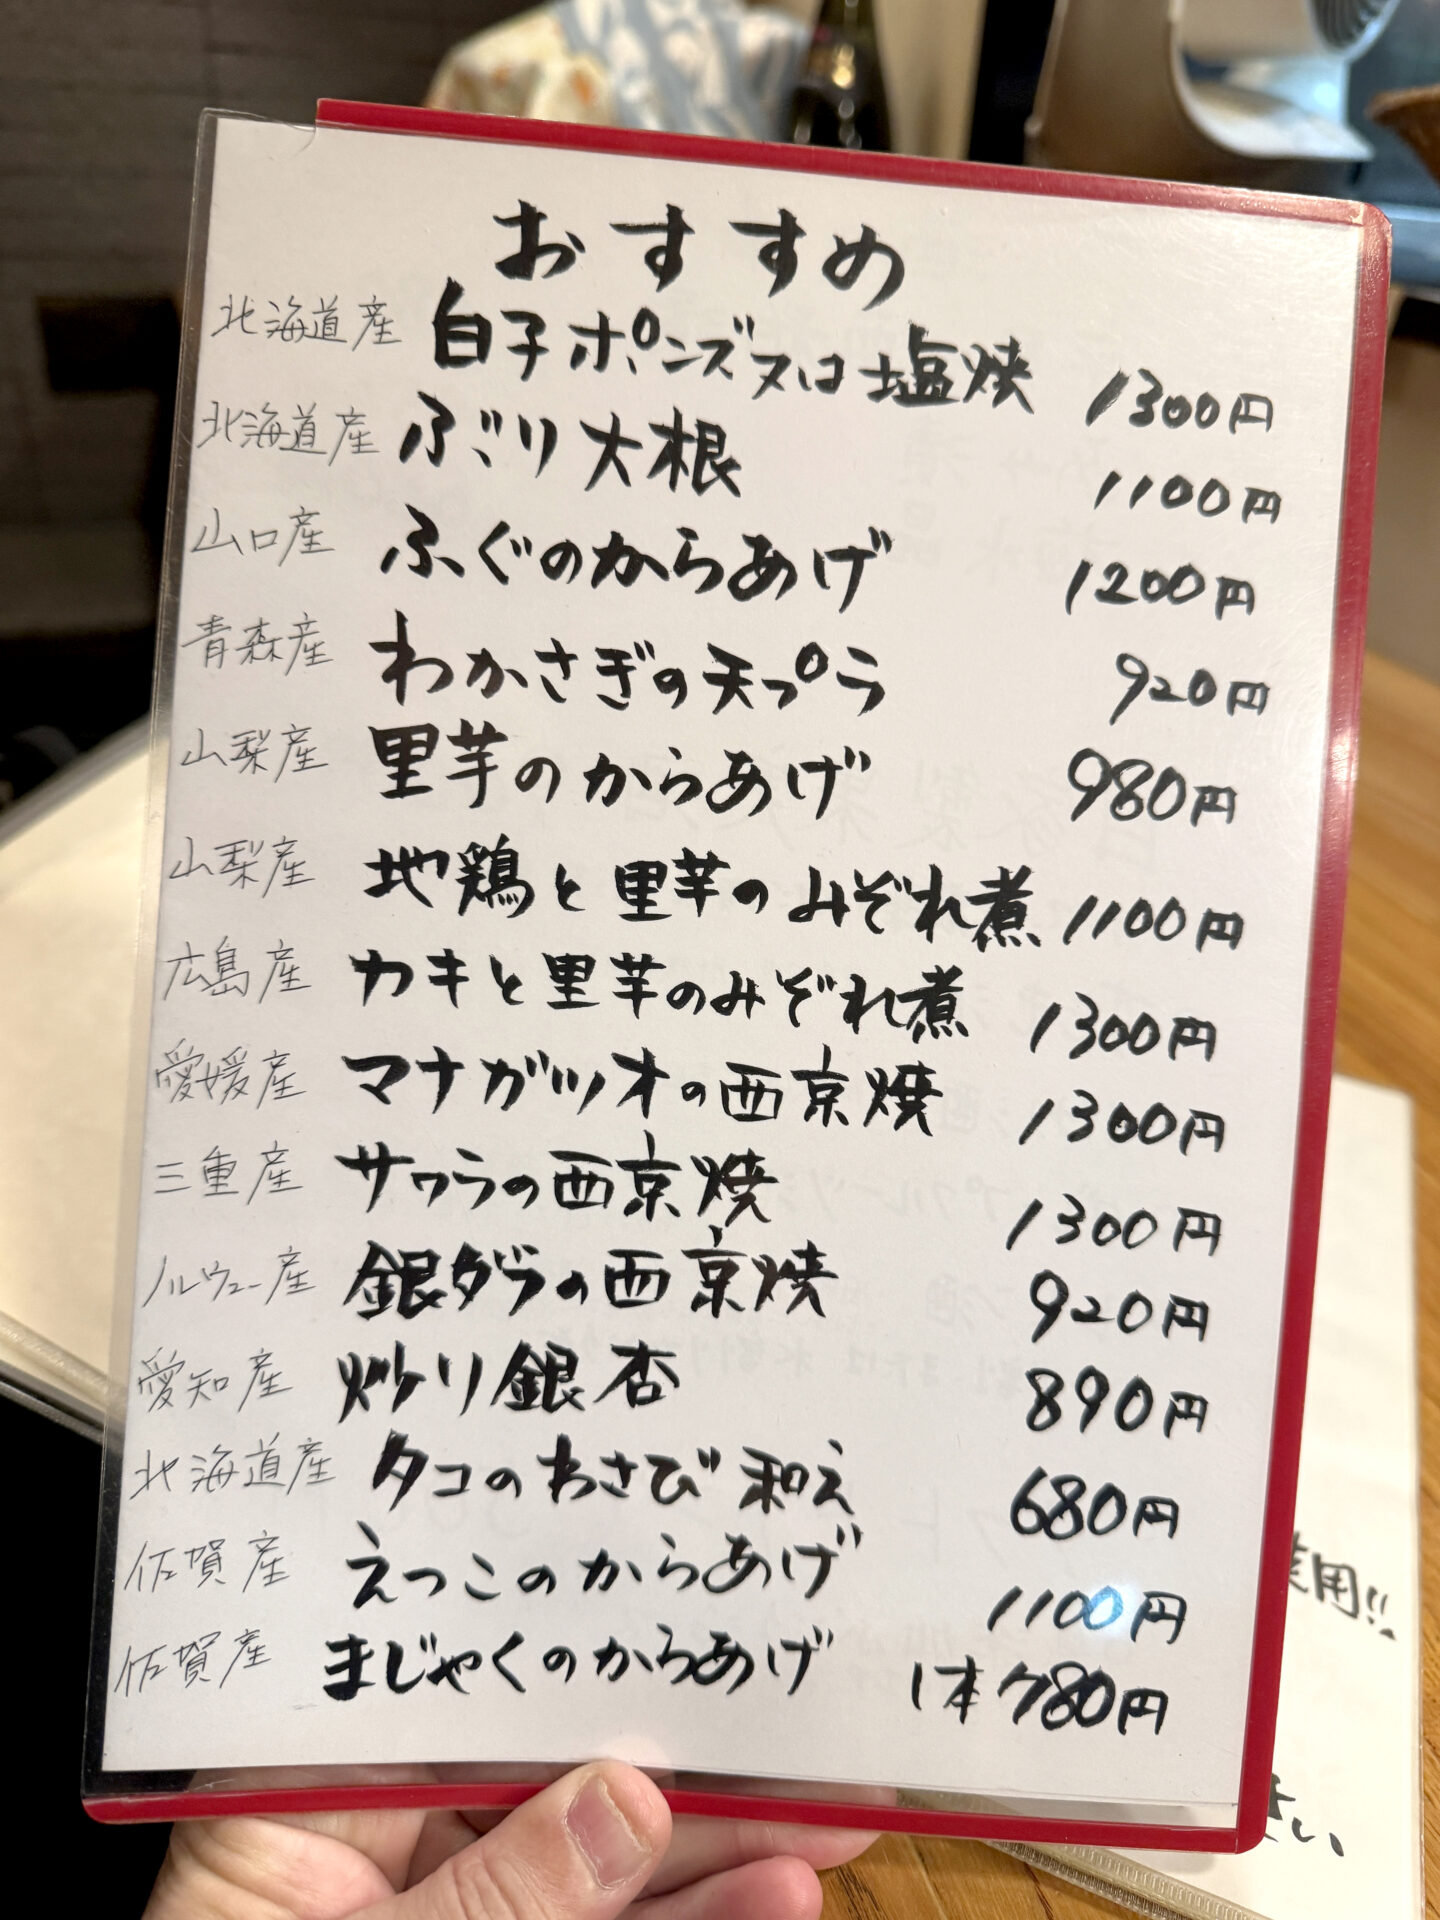 おすすめ
北海道産 白子ポンズ又は塩焼 1300円
北海道産 ぶり大根 1100円
山口産 ふぐのからあげ 1200円
青森産 わかさぎの天プラ 920円
山梨産 里芋のからあげ 980円
山梨産 地鶏と里芋のみぞれ煮 1100円
広島産 カキと里芋のみぞれ煮 1300円
愛媛産 マナガツオの西京焼 1300円
三重産 サワラの西京焼 1300円
ノルウェー産 銀ダラの西京焼 920円
愛知産 炒り銀杏 890円
北海道産 タコのわさび和え 680円
佐賀産 えつこのからあげ 1100円
佐賀産 まじゃくのからあげ 1本780円
用!!
さい